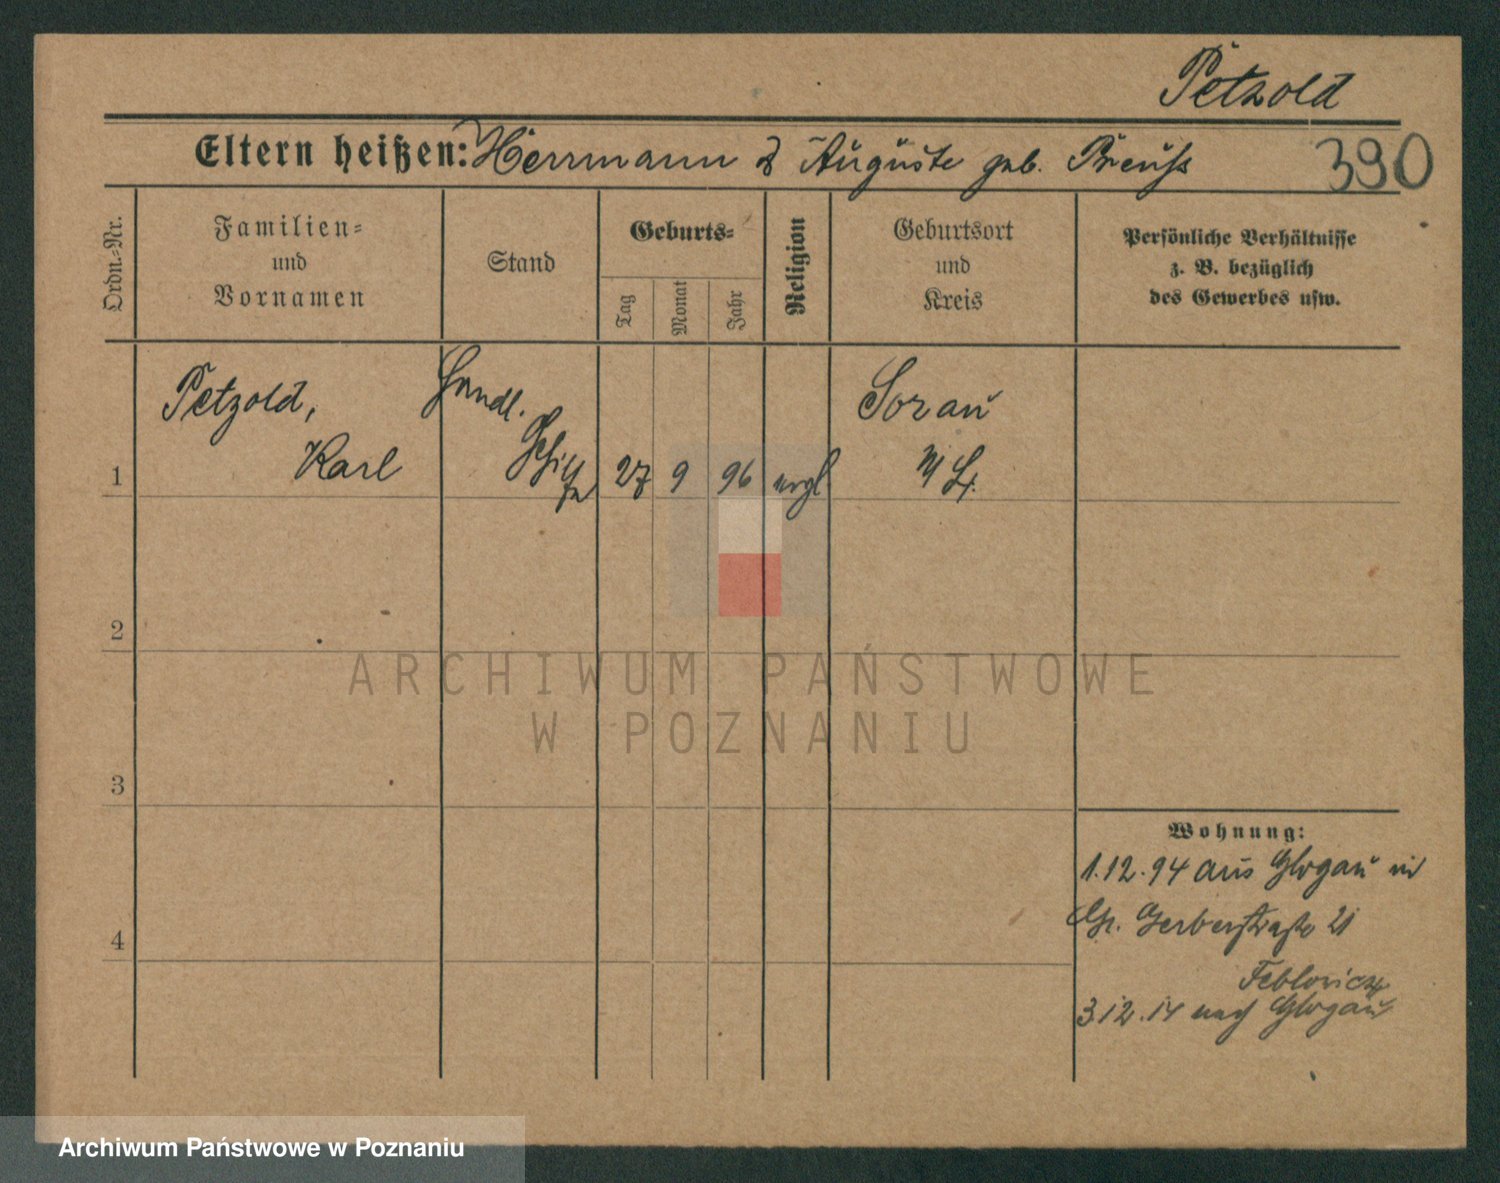 Petzold
Eltern heißen: Herrmann & Auguste geb. Preuß
390
Ordn.-Nr.
Familien-
und
Vornamen
Stand
Geburts-
Tag
Monat
Jahr
Religion
Geburtsort
und
Kreis
Persönliche Verhältnisse
z. B. bezüglich
des Gewerbes usw.
Petzold,
Karl
Handl.
27 9 96
Sorau
N/L.
1
2
3
4
Wohnung:
1.12.94 aus Glogau in
Gerberstraße 21
3.12.14 nach Glogau
ARCHIWUM PAŃSTWOWE
W POZNANIU
Archiwum Państwowe w Poznaniu